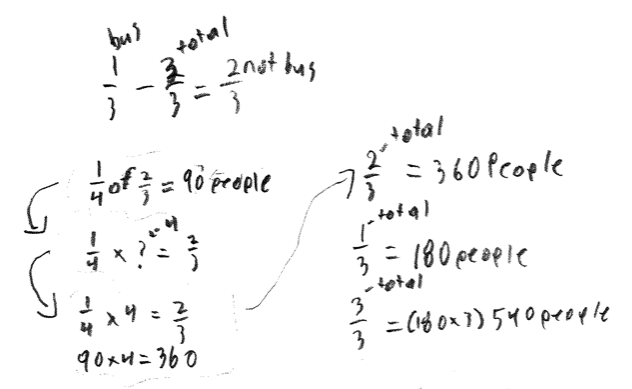 bus total
1/3 - 3/3 = 2/3 not bus
1/4 of 2/3 = 90 people
1/4 x ? = 2/3
1/4 x 4 = 2/3
90x4=360
2/3 - total = 360 People
1/3 - total = 180 people
3/3 - total = (180x3) 540 people